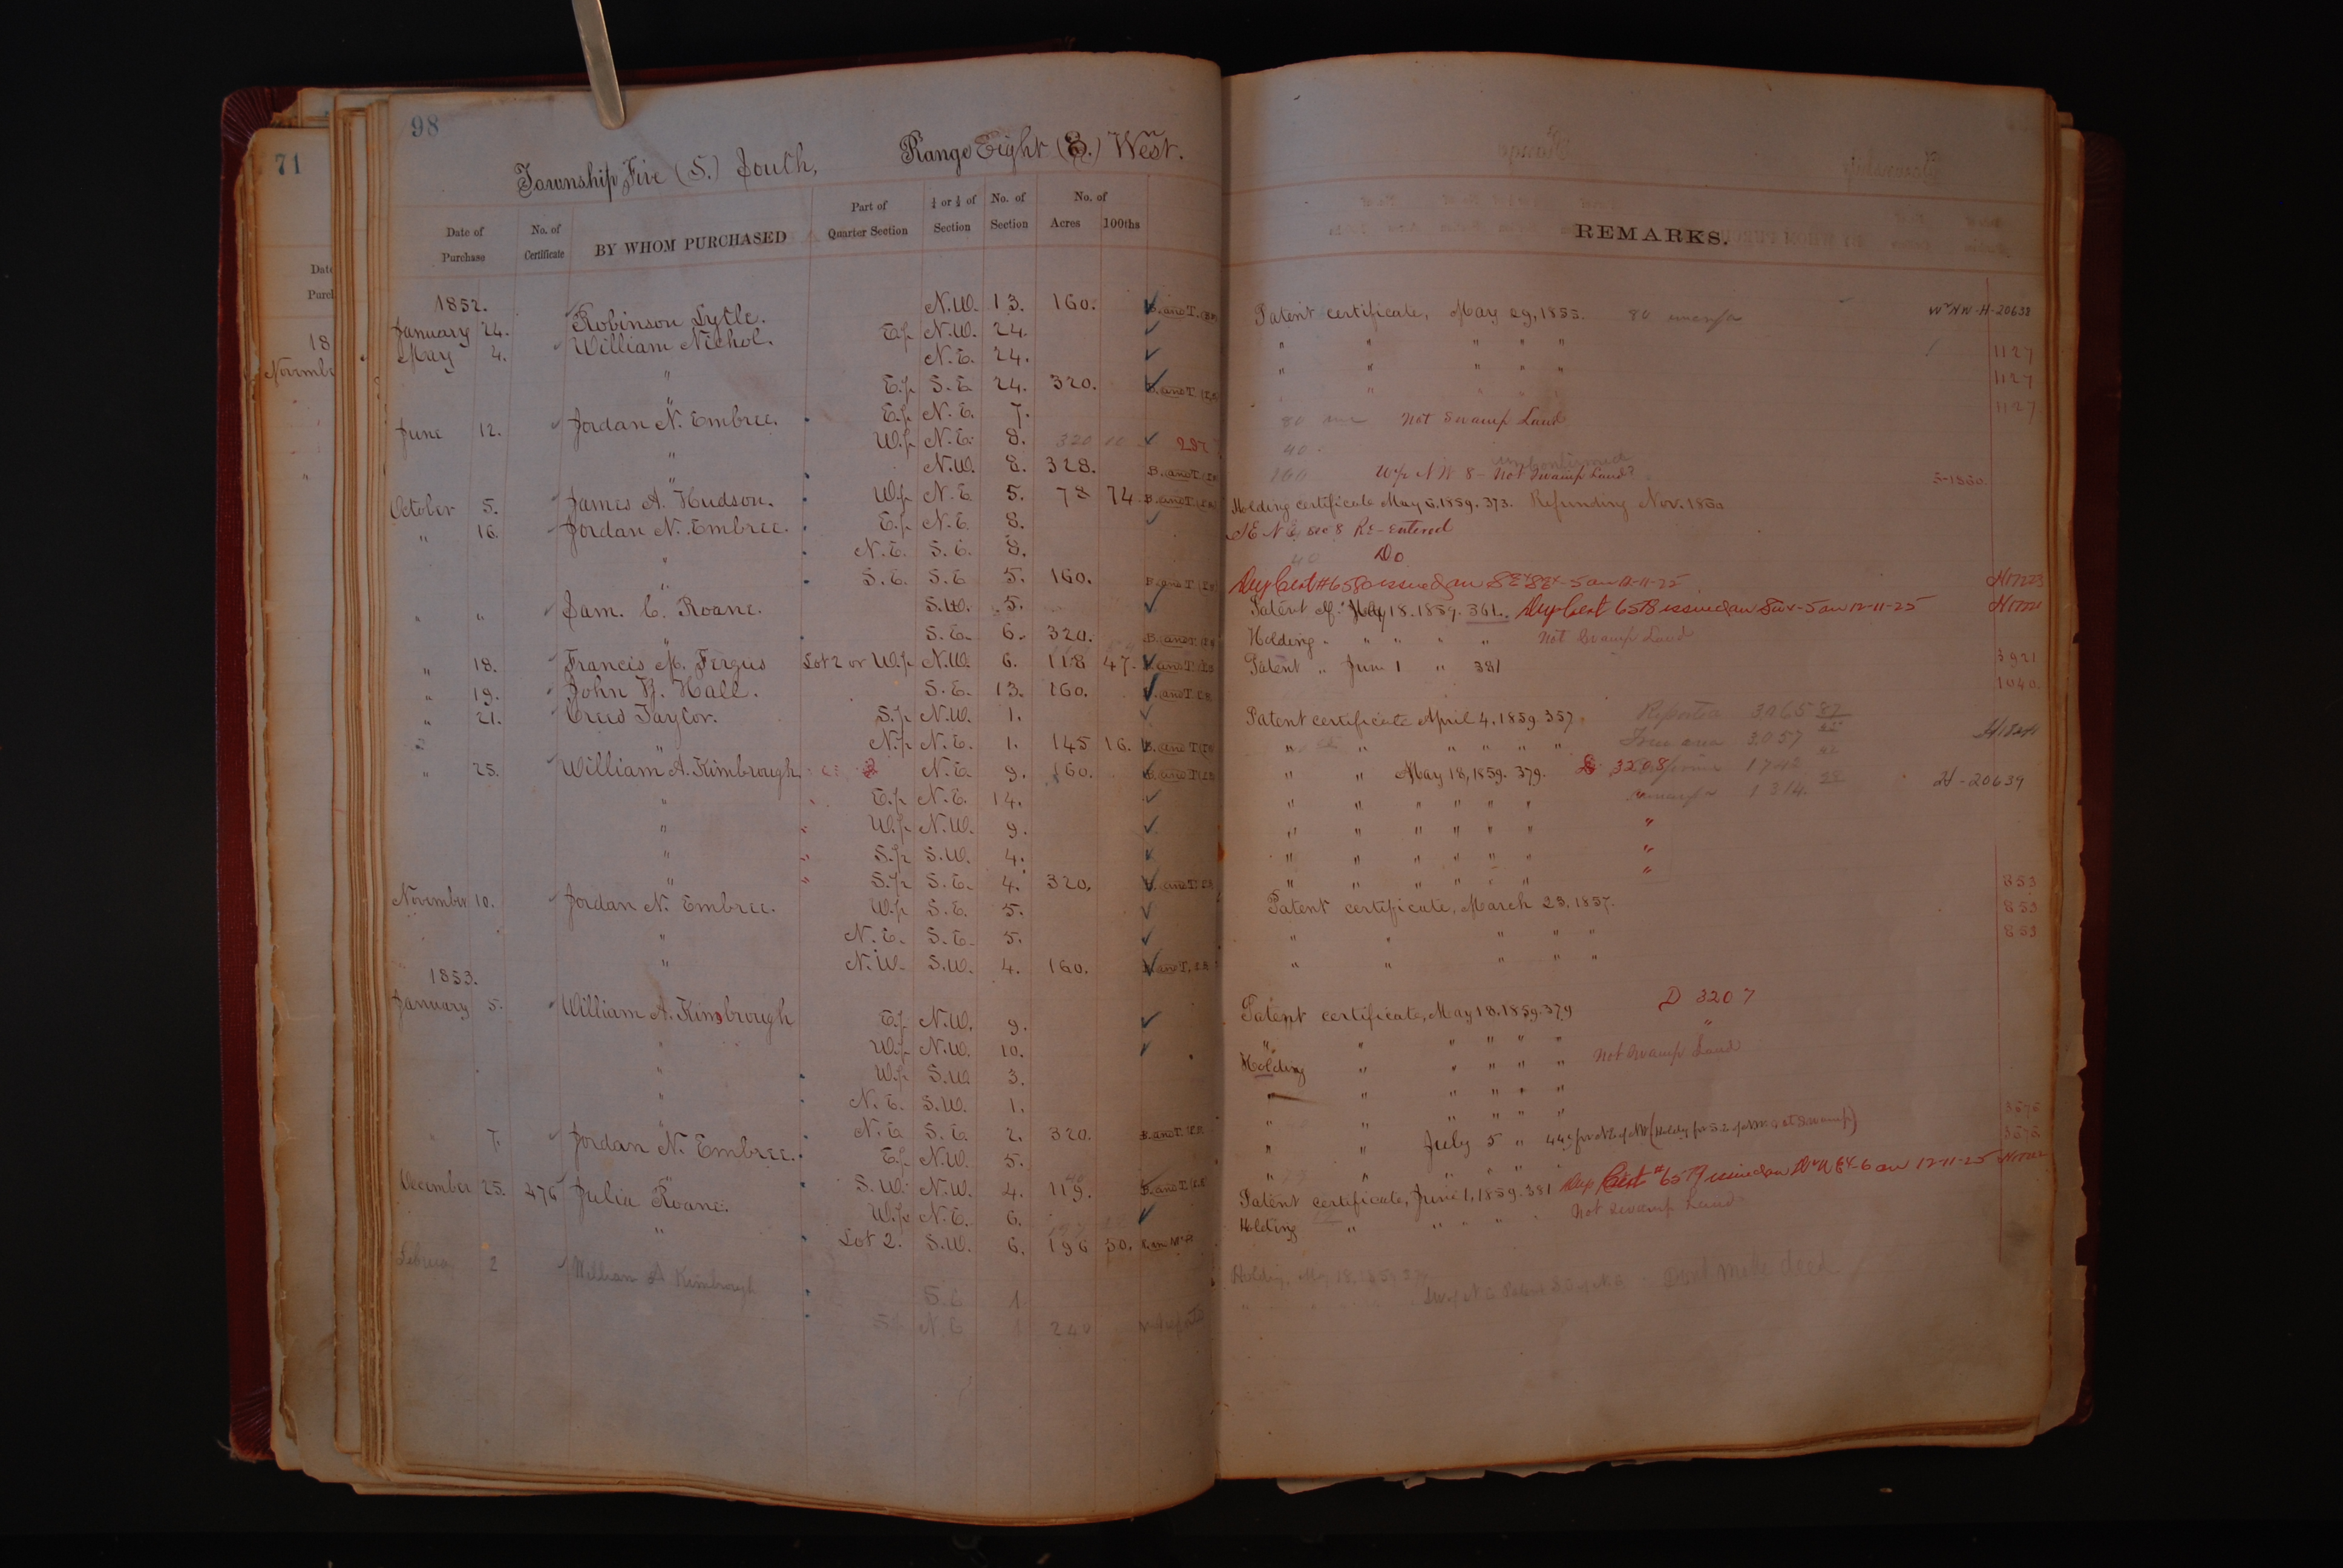 98
71
Township Five (5.) South, Range Eight (8.) West.
Date of Purchase No. of Certificate BY WHOM PURCHASED Part of Quarter Section ¼ or ½ of Section No. of Section No. of Acres 100ths REMARKS.
1852.
January 24. Robinson Lytle. N.W. 13. 160. B. and T. Patent certificate, May 29, 1855. 80 W½ NW-H-20638
May 4. William Nichol. E.½ N.W. 24. " " " " " 1127
" N.E. 24. " " " " " 1127
" E.½ S.E. 24. 320. B. and T. " " 1127
June 12. Jordan N. Embree. E.½ N.E. 7. 80 Not Swamp Land
" W.½ N.E. 8. 40
" N.W. 8. 328. B. and T. 160 W½ N W 8 - Not Swamp Land?
October 5. James A. Hudson. W.½ N.E. 5. 78 74. B. and T. Holding certificate May 5, 1859. 373. Refunding Nov. 1860 5-1860.
" 16. Jordan N. Embree. E.½ N.E. 8. S E N E, sec 8 Re-entered
" N.E. S.E. 8. 40 Do
" S.E. S.E. 5. 160. B. and T. Dup Cert #6580 issued on SE¼SE¼-5 on 12-11-25
" " Sam. C. Roane. S.W. 5. Patent cf. May 18. 1859. 361. Dup Cert 6578 issued on SW¼-5 on 12-11-25
" S.E. 6. 320. B. and T. Holding " " " " " Not Swamp Land
" 18. Francis M. Fergus Lot 2 or W.½ N.W. 6. 118 47. B. and T. Patent " June 1 " 381 3921
" 19. John H. Hall. S.E. 13. 160. B. and T. 1040.
" 21. Creed Taylor. S.½ N.W. 1. Patent certificate April 4, 1859. 357. Reported 3065 87
" N.½ N.E. 1. 145 16. B. and T. " " " " " " 3057
" 25. William A. Kimbrough N.E. 9. 160. B. and T. " " May 18, 1859. 379. D 3208 1742
" E.½ N.E. 14. " " " " " " 1314. H-20639
" W.½ N.W. 9. " " " " " " "
" S.½ S.W. 4. " " " " " " "
" S.½ S.E. 4. 320. B. and T. " " " " " " " 853
November 10. Jordan N. Embree. W.½ S.E. 5. Patent certificate, March 23, 1857. 853
" N.E. S.E. 5. " " " " " 853
" N.W. S.W. 4. 160. B. and T. " " " " "
1853.
January 5. William A. Kimbrough E.½ N.W. 9. Patent certificate, May 18. 1859. 379 D 3207
" W.½ N.W. 10. " " " " " " "
" W.½ S.W. 3. Holding " " " " " Not Swamp Land
" N.E. S.W. 1. " " " " " "
" N.E. S.E. 2. 320. B. and T. " " " " " "
" 7. Jordan N. Embree. E.½ N.W. 5. " " July 5 "
" S.W. N.W. 4. 119. B. and T. " " " " "
December 25. 476 Julia Roane. W.½ N.E. 6. Patent certificate, June 1, 1859. 381 Dup Cert #6579 issued on W½ N E¼-6 on 12-11-25
" Lot 2. S.W. 6. 196 50. Holding " " " " Not Swamp Land
2 William A Kimbrough S.E. 1 Holding, May 18, 1859 379
N.E. 1 240 Dont make deed